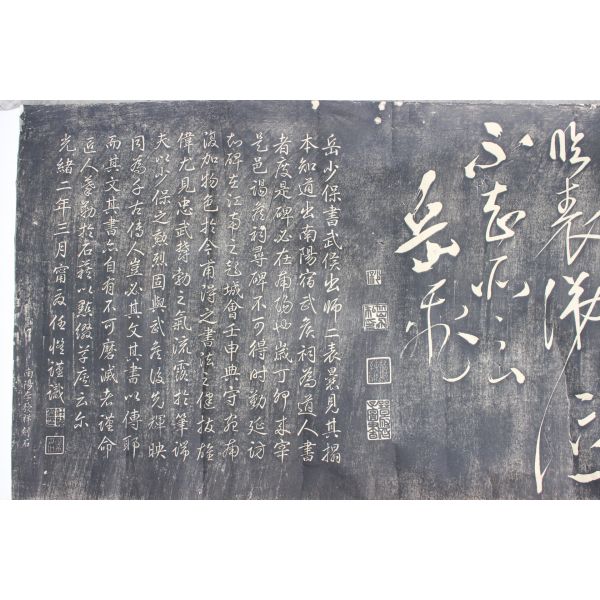 臨表涕泣
不知所云
岳飛
岳少保書武侯出師二表曩見其搨
本知道出南陽宿武侯祠為道人書
者度是碑必在南陽也歲丁卯來宰
是邑謁侯祠尋碑不可得時勤延訪
知碑在江南之彭城會壬申典守宛南
復加物色於今甫得之書法之健拔雄
偉尤見忠武鬱勃之氣流露於筆端
夫以少保之勳烈固與武侯後先輝映
同為千古傳人豈必其文其書以傳耶
而其文其書亦自有不可磨滅者謹命
匠人摹勒於石藉以點綴草廬云尔
光緒二年三月甯鄉任愷謹識
南陽李
刻石